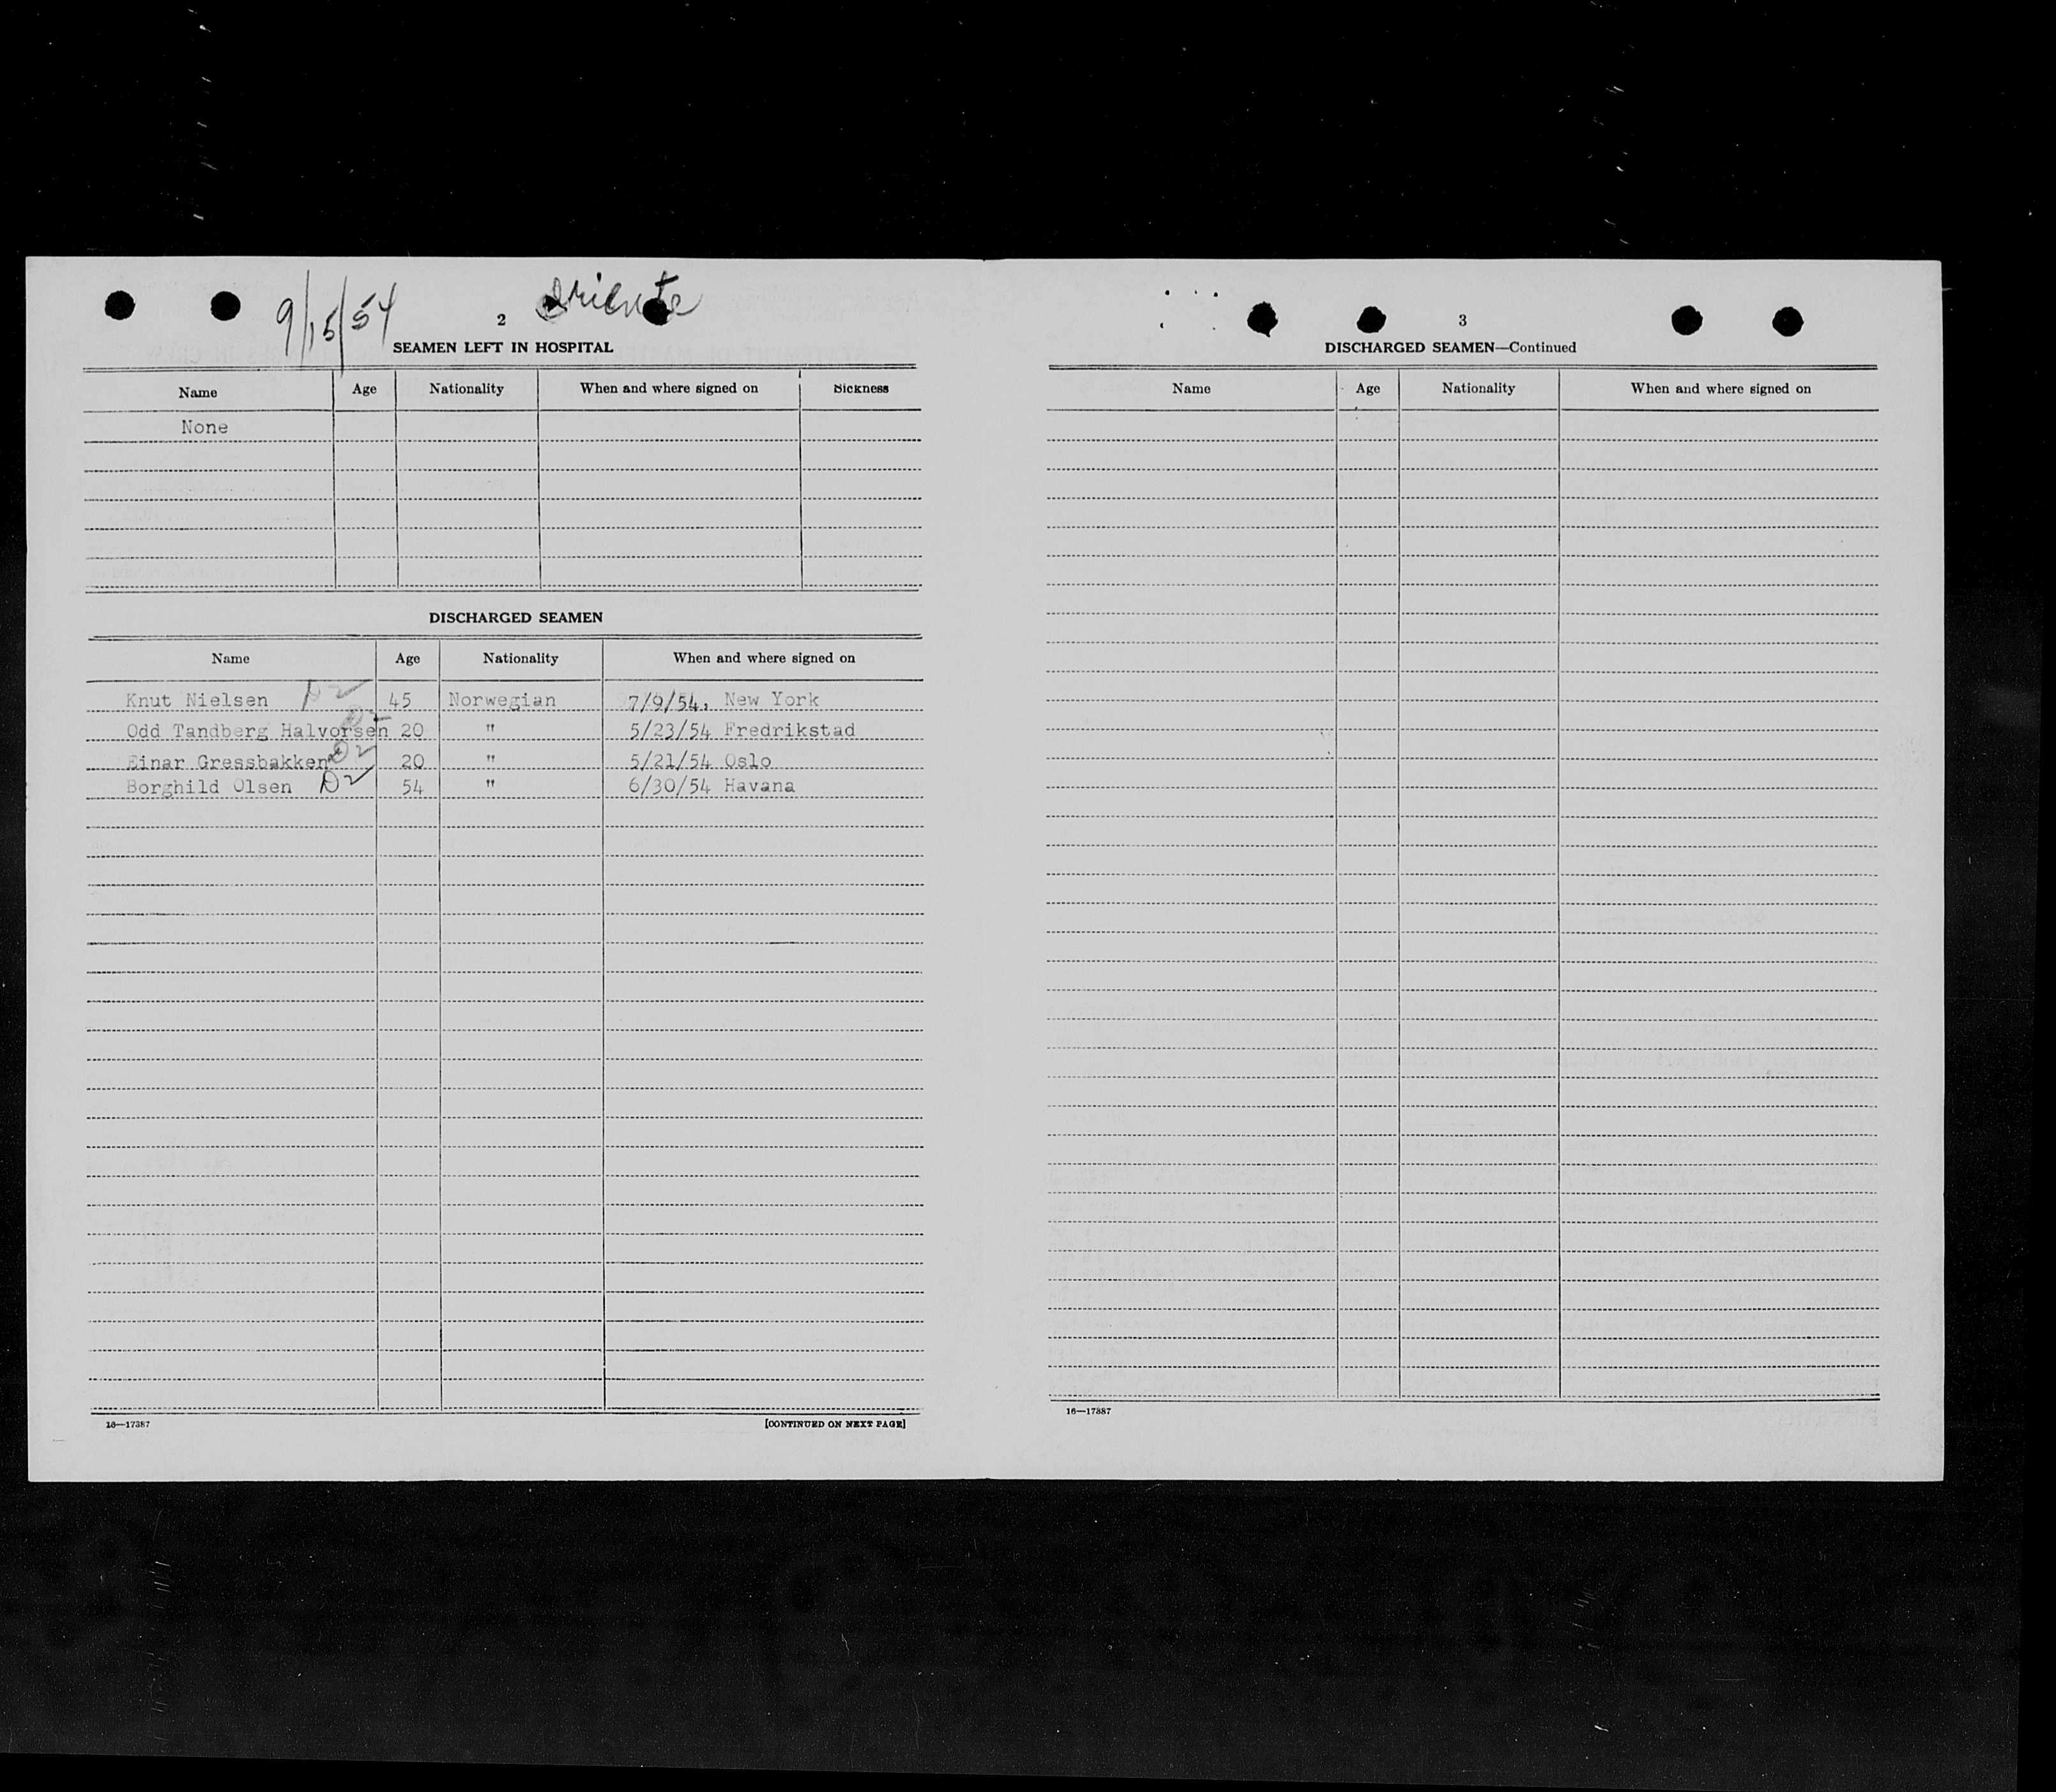 9/15/54
2
Oriente
SEAMEN LEFT IN HOSPITAL
Name Age Nationality When and where signed on Sickness
None
DISCHARGED SEAMEN
Name Age Nationality When and where signed on
Knut Nielsen D2 45 Norwegian 7/9/54, New York
Odd Tandberg Halvorsen 20 " 5/23/54 Fredrikstad
Einar Gressbakken D2 20 " 5/21/54 Oslo
Borghild Olsen D2 54 " 6/30/54 Havana
16—17387 [CONTINUED ON NEXT PAGE]
3
DISCHARGED SEAMEN—Continued
Name Age Nationality When and where signed on
16—17387